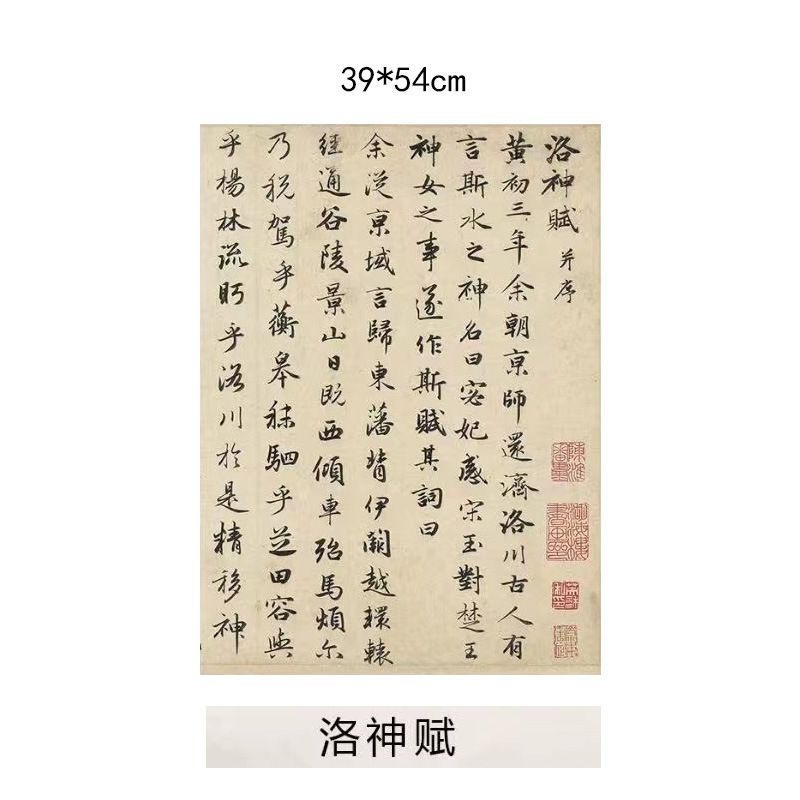 39*54cm
洛神賦 并序
黄初三年余朝京師還濟洛川古人有
言斯水之神名曰宓妃感宋玉對楚王
神女之事遂作斯賦其詞曰
余従京域言歸東藩背伊闕越轘轅
經通谷陵景山日既西傾車殆馬煩尔
乃税駕乎蘅皋秣駟乎芝田容與
乎楊林流眄乎洛川於是精移神
洛神赋